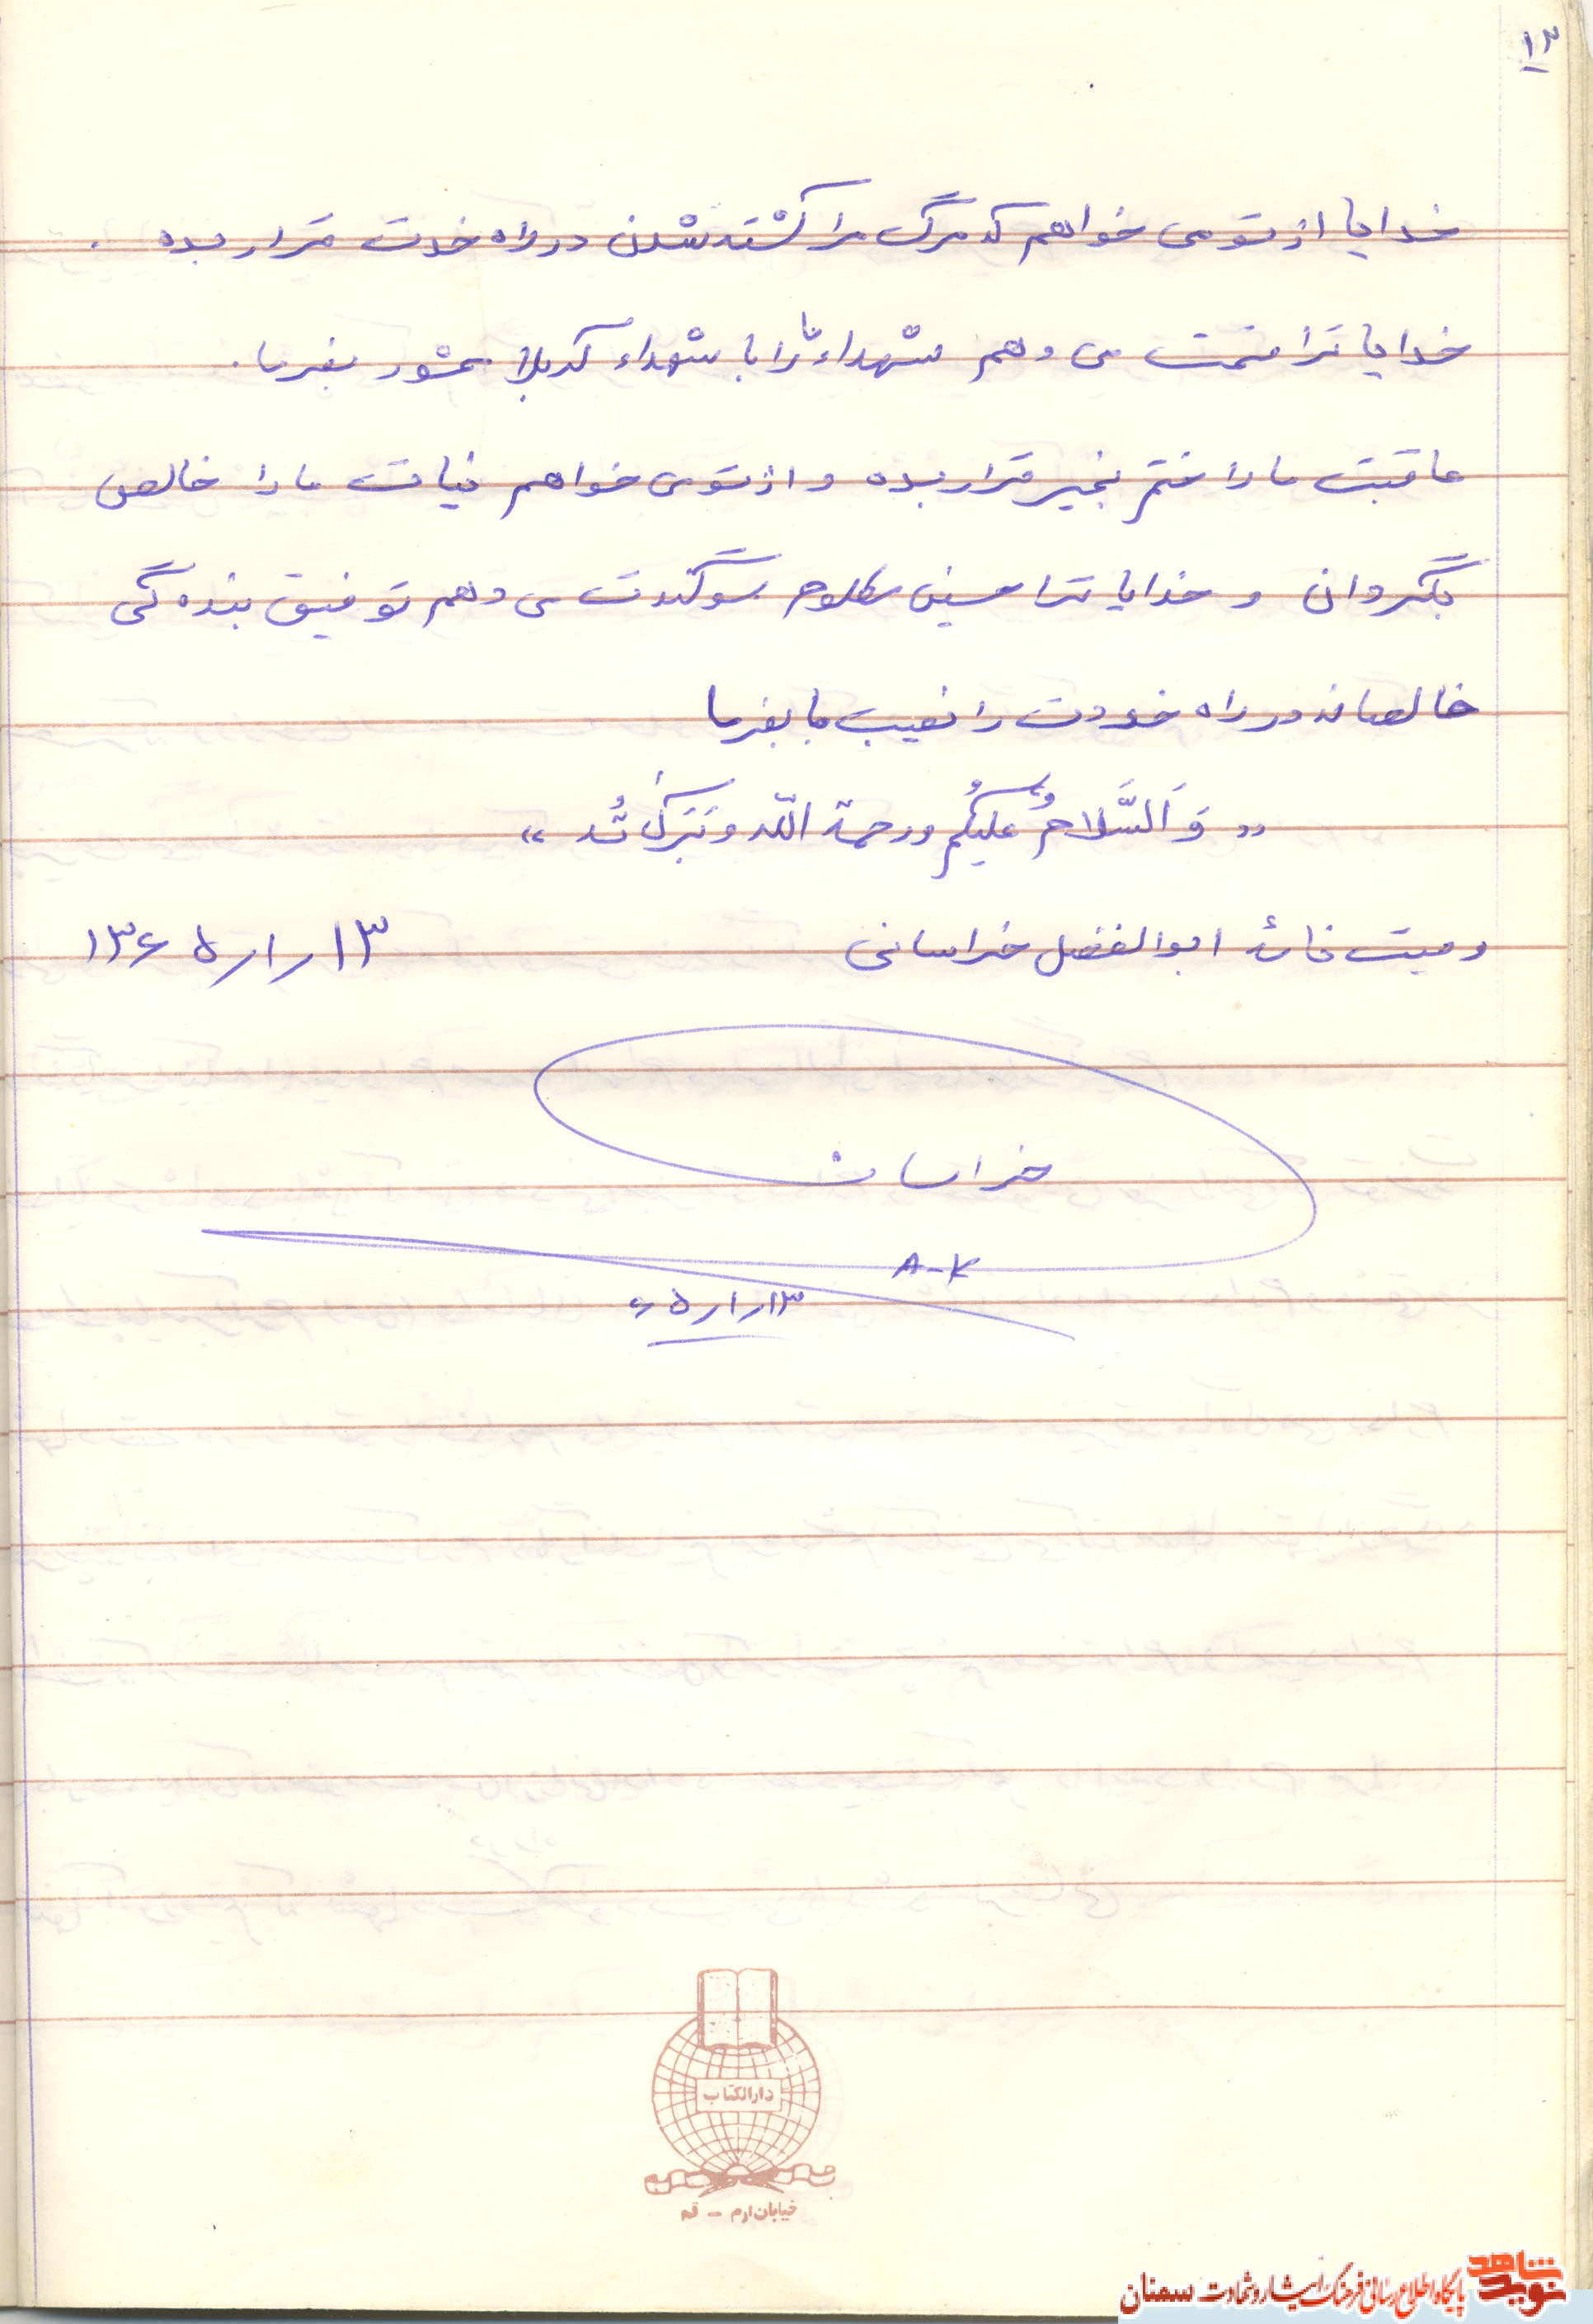 ۱۳
خدایا از تو می خواهم که مرگ مرا کشته شدن در راه خدت قرار بده .
خدایا ترا قسمت می دهم شهداء ما را با شهداء کربلا محشور بفرما .
عاقبت ما را ختم بخیر قرار بده و از تو می خواهم نیات ما را خالص
بگردان و خدایا ترا حسین مظلوم سوگندت می دهم توفیق بنده گی
خالصانه در راه خودت را نصیب ما بفرما
«وَ اَلسَّلامُ عَلیکُم ورحمة اللّه وَ بَرَکاتُه»
وصیت نامهٔ ابوالفضل خراسانی ۱۳/۱/۱۳۶۵
خراسانی
A-K
۱۳/۱/۶۵
دارالکتاب
خیابان ارم - قم
نوید شاهد
پایگاه اطلاع رسانی فرهنگ ایثار و شهادت سمنان